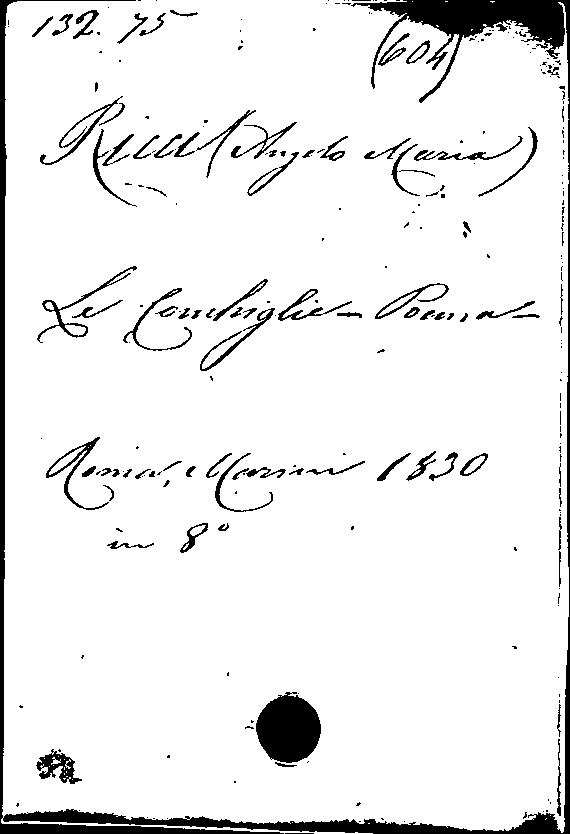 132. 75
(604)
Ricci (Angelo Maria)
Le Conchiglie - Poema -
Roma, Marini 1830
in 8°